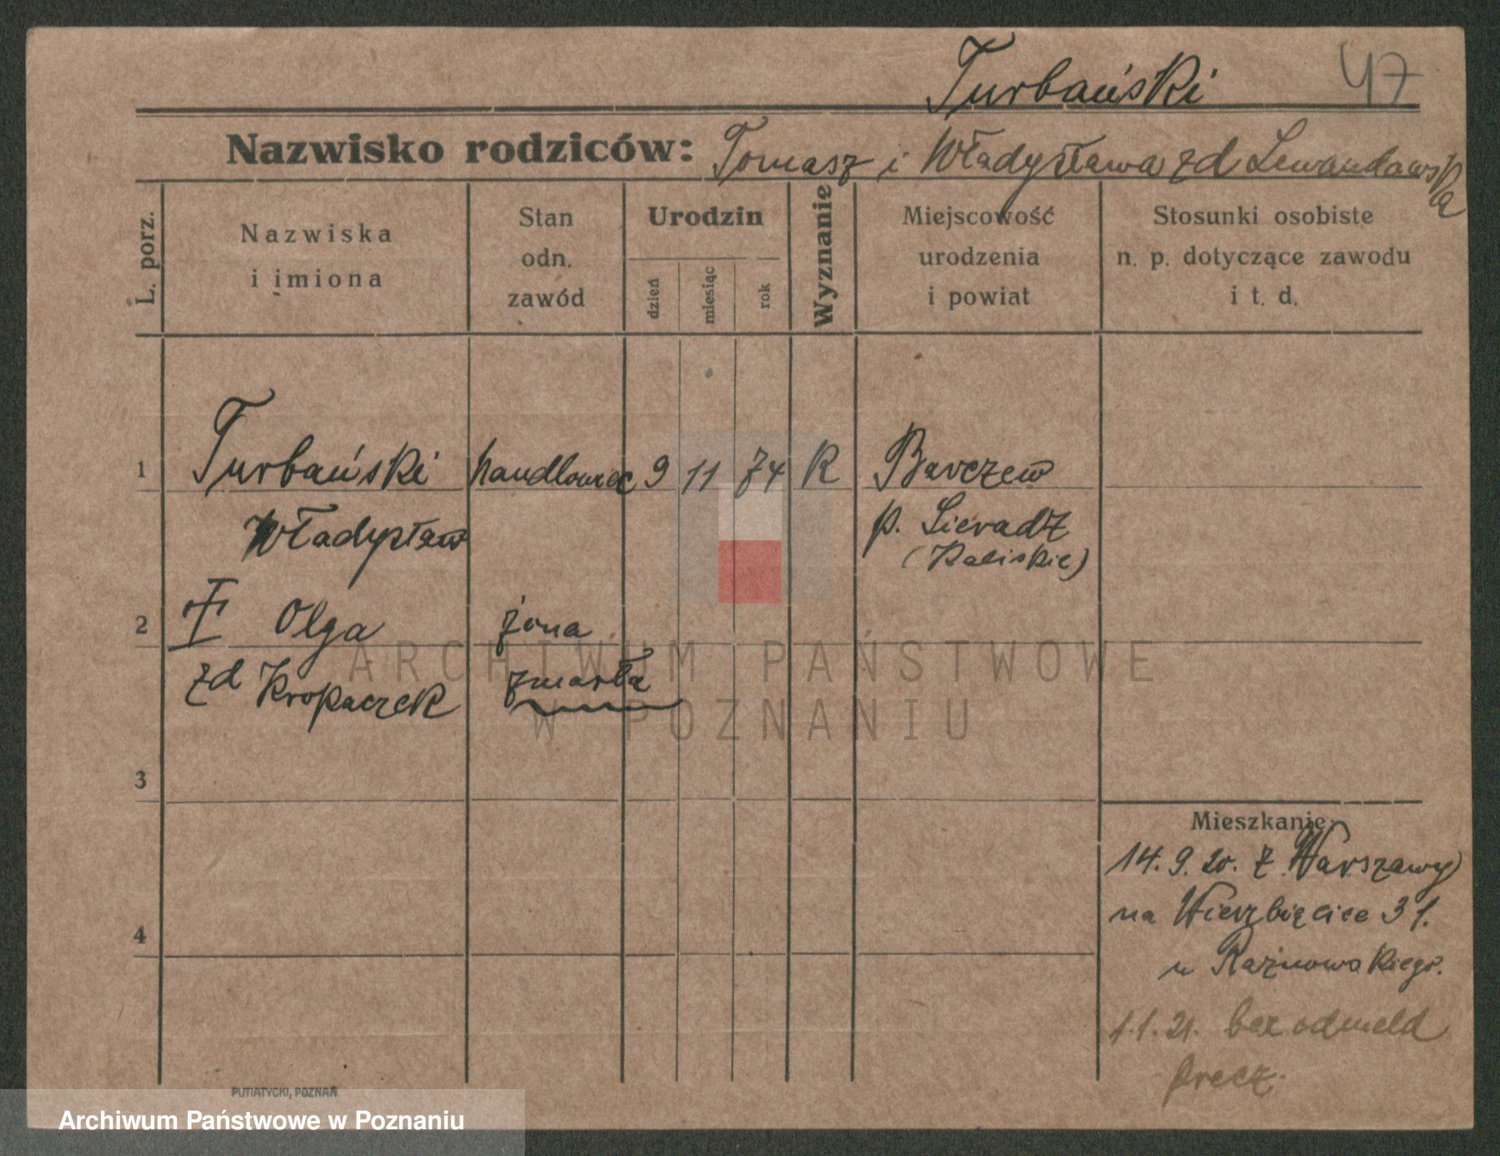 Turbański 47
Nazwisko rodziców: Tomasz i Władysława zd Lewandowska
L. porz.
Nazwiska
i imiona
Stan
odn.
zawód
Urodzin
dzień
miesiąc
rok
Wyznanie
Miejscowość
urodzenia
i powiat
Stosunki osobiste
n. p. dotyczące zawodu
i t. d.
1 Turbański handlowiec 9 11 74 R Barczew
Władysław p. Sieradz
(Kaliskie)
2 I Olga żona
zd Kropaczek zmarła
3
4
Mieszkanie:
14. 9. 20. z Warszawy
na Wierzbięcice 31.
u Rażnowskiego.
1. 1. 21. bez odmeld
precz.
PUTIATYCKI, POZNAŃ
ARCHIWUM PAŃSTWOWE
W POZNANIU
Archiwum Państwowe w Poznaniu